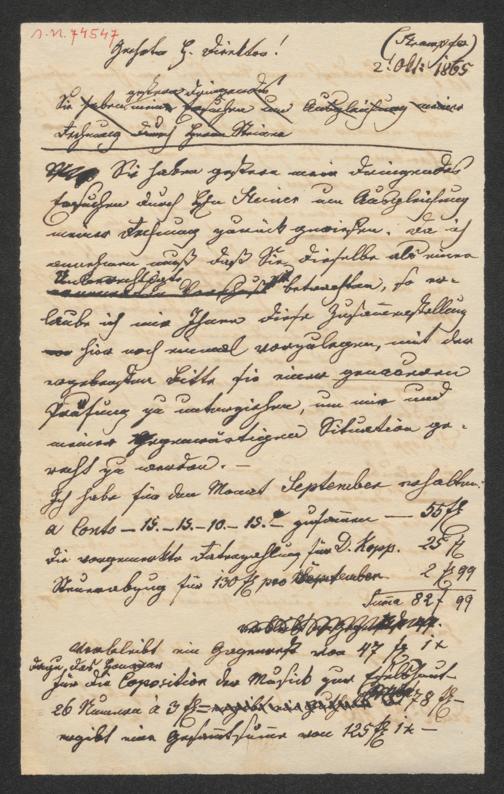 I.N. 74547
Geehrter H. Direktor!
(Strampfer)
2. Okt. 1865
gestern dringendes
Sie haben mein Ersuchen um Ausgleichung meiner
Rechnung durch Herrn Steiner
Sie haben gestern mein dringendes
Ersuchen durch Hrn Steiner um Ausgleichung
meiner Rechnung zurück gewiesen. Da ich
annehmen muß, daß Sie dieselbe als einen
betrachten, so er-
laube ich mir Ihnen diese Zusammenstellung
hier noch einmal vorzulegen, mit der
ergebensten Bitte sie einer genaueren
Prüfung zu unterziehen, um mir und
meiner gegenwärtigen Situation ge-
recht zu werden. —
Ich habe für den Monat September erhalten:
a Conto — 15. — 15. — 10. — 15. — zusammen — 55 fl
die vorgemerkte Ratenzahlung für D. Kopp. 25 fl
Steuerabzug für 130 fl pro September 2 fl 99
Suma 82 f 99
Verbleibt ein Gegenrest von 47 fl 1 x
dazu das Honorar
für die Composition der Musick zur Eselshaut
26 Numern à 3 fl 78 fl —
ergibt eine Gesamtsumme von 125 fl 1 x —